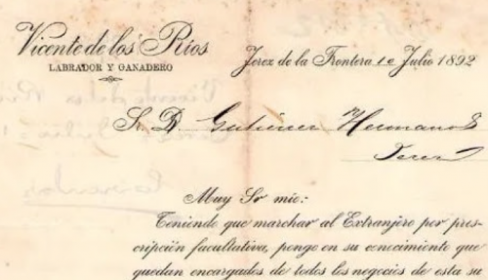 Vicente de los Rios
LABRADOR Y GANADERO
Jerez de la Frontera 1º Julio 1892
Sr. D. Gutierrez Hermanos
Jerez
Muy Sr mio:
Teniendo que marchar al Extranjero por pres-
cripción facultativa, pongo en su conocimiento que
quedan encargados de todos los negocios de esta su